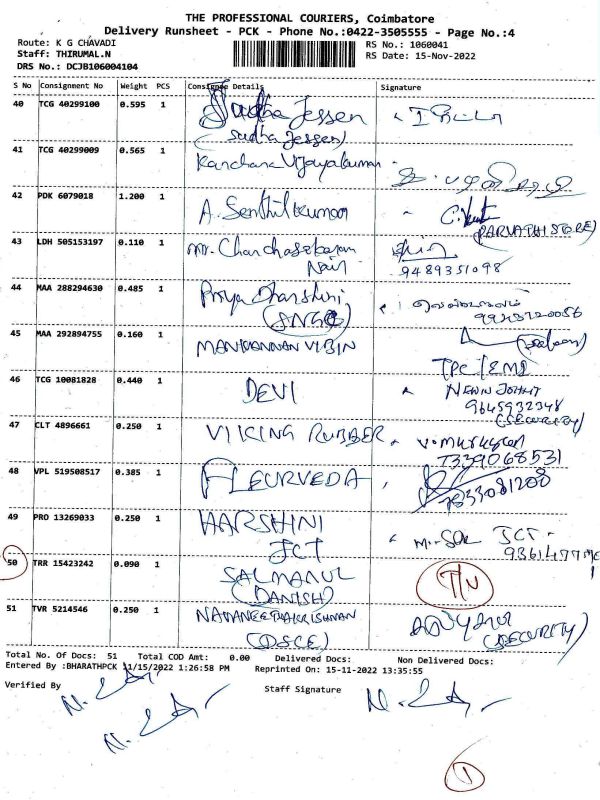 THE PROFESSIONAL COURIERS, Coimbatore
Delivery Runsheet - PCK - Phone No.:0422-3505555 - Page No.:4
Route: K G CHAVADI
RS No.: 1060041
Staff: THIRUMAL.N
RS Date: 15-Nov-2022
DRS No.: DCJB106004104
S No Consignment No Weight PCS Consignee Details Signature
40 TCG 40299100 0.595 1 Sudha Jessen
(Sudha Jessen)
41 TCG 40299009 0.565 1 Kanchana Vijayakumar
42 PDK 6079018 1.200 1 A. Senthilkumar
(PARVATHI STORE)
43 LDH 505153197 0.110 1 Mr. Chandrasekaran
Nair 9489351098
44 MAA 288294630 0.485 1 Priya Dharshini
(SNGC)
45 MAA 292894755 0.160 1 MANIKANNAN VIBIN
46 TCG 10081828 0.440 1 DEVI
9645932348
(SECURITY)
47 CLT 4896661 0.250 1 VIKING RUBBER
7339068531
48 VPL 519508517 0.385 1 FLEURVEDA
7833081208
49 PRO 13269033 0.250 1 HARSHINI
JCT JCT-
50 TRR 15423242 0.090 1 SALMANUL
(DANISH)
51 TVR 5214546 0.250 1 NAVANEETHAKRISHNAN
(DSCE) (SECURITY)
Total No. Of Docs: 51 Total COD Amt: 0.00 Delivered Docs: Non Delivered Docs:
Entered By :BHARATHPCK 11/15/2022 1:26:58 PM Reprinted On: 15-11-2022 13:35:55
Verified By Staff Signature
1